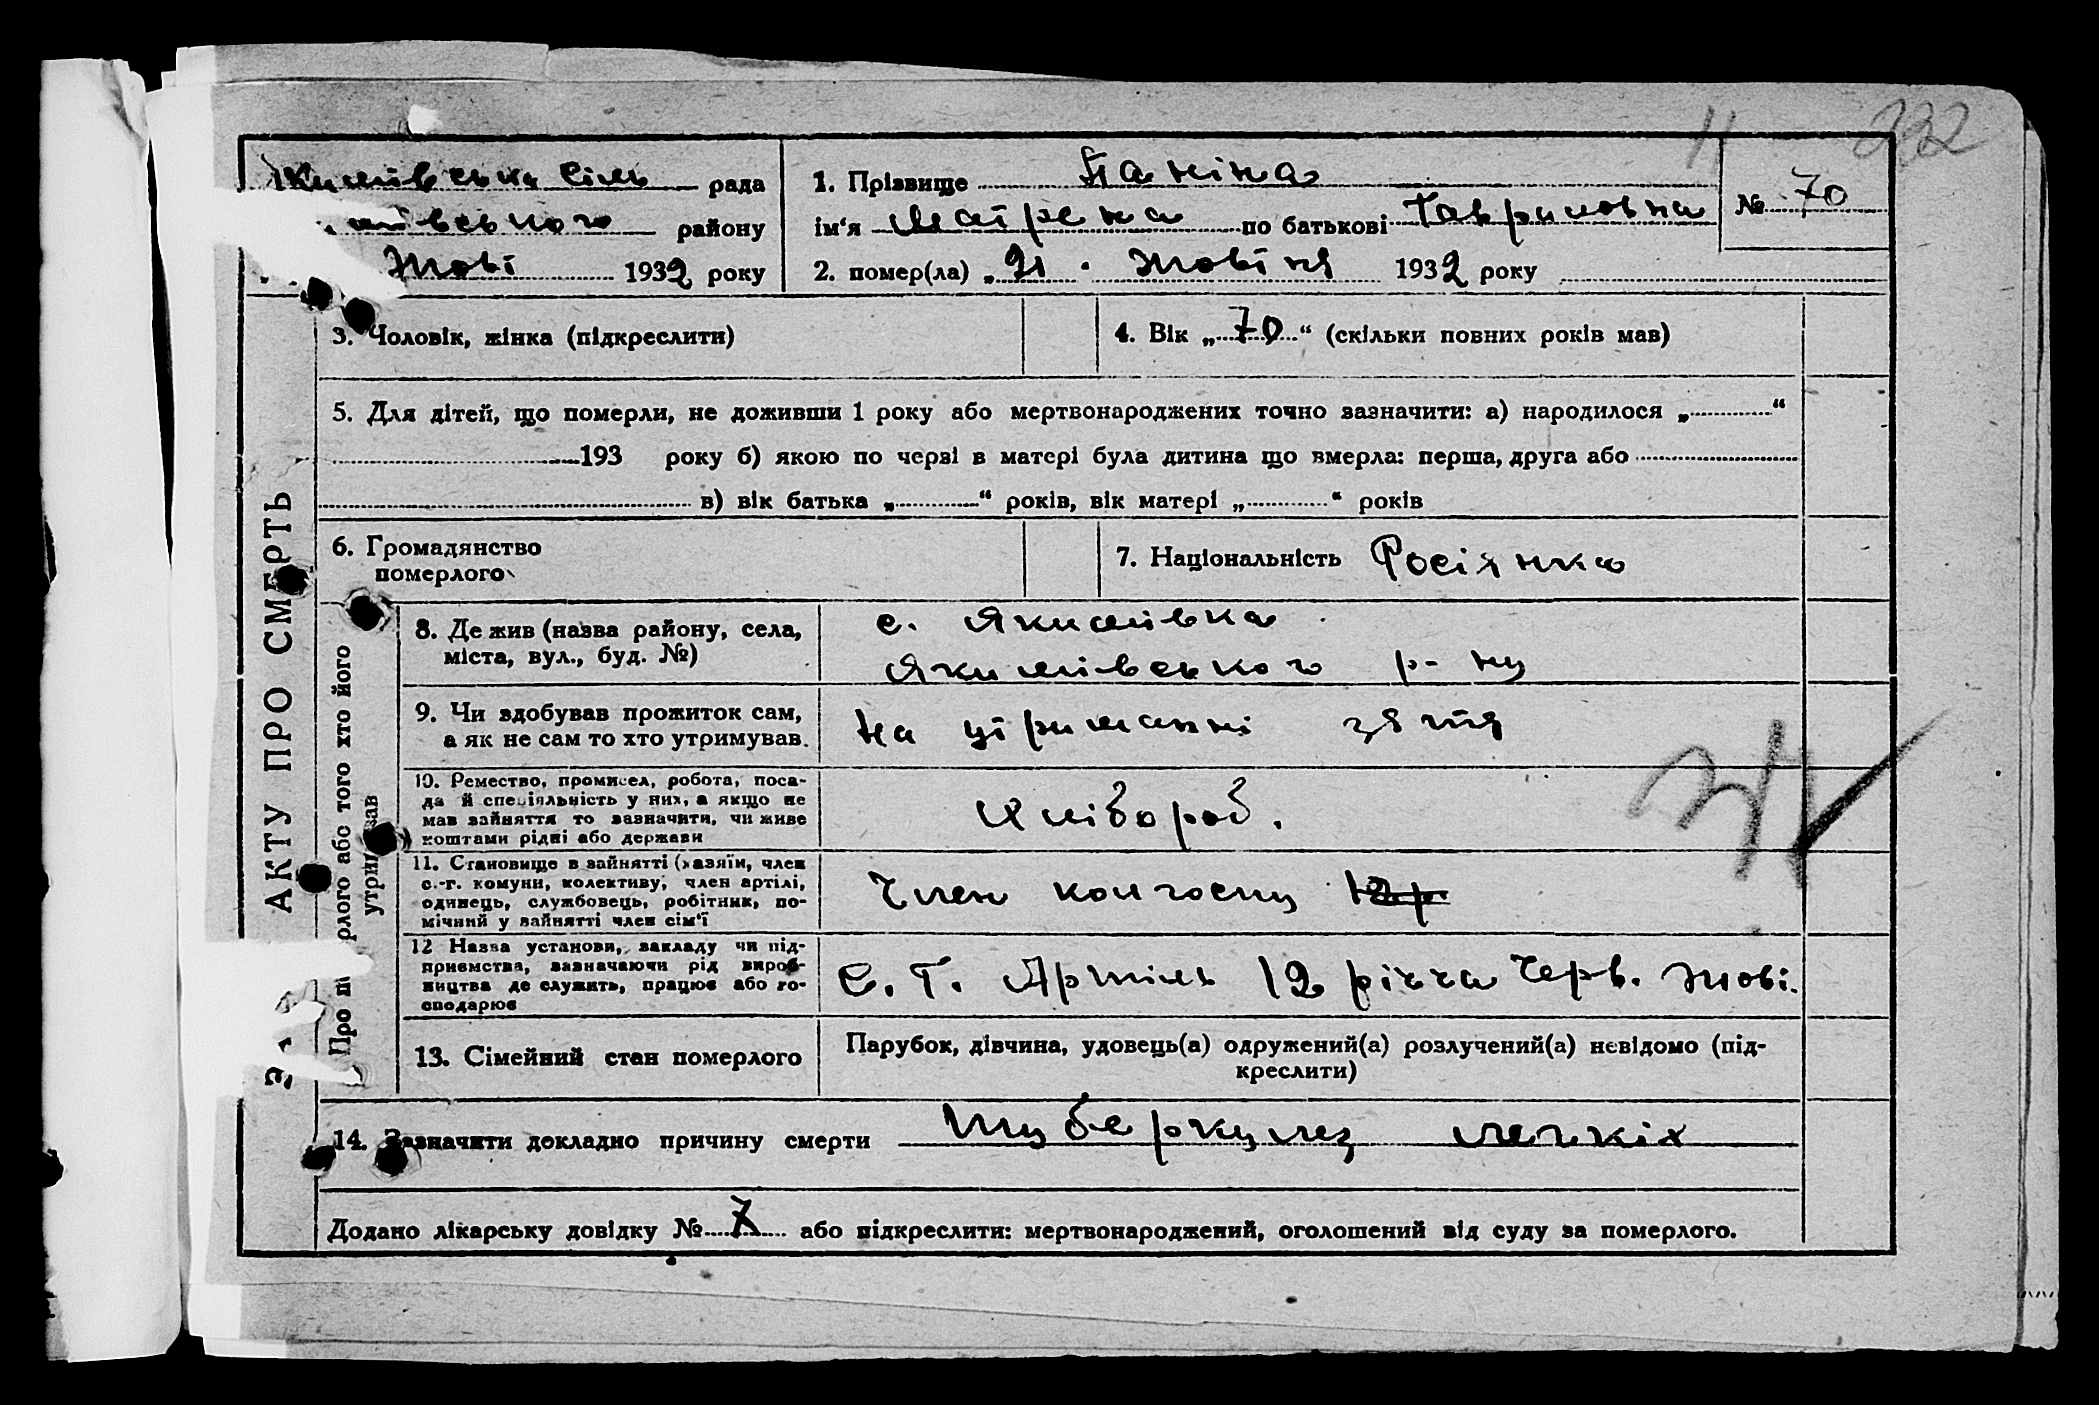 11 232
Якимівська сіль рада
1. Прізвище Паніна
№ 70
району
ім'я Матрена по батькові Гавриловна
Жовт 1932 року
2. помер(ла) „21" Жовтня 1932 року
3. Чоловік, жінка (підкреслити)
4. Вік „70" (скільки повних років мав)
5. Для дітей, що померли, не доживши 1 року або мертвонароджених точно зазначити: а) народилося „ "
193 року б) якою по черзі в матері була дитина що вмерла: перша, друга або
в) вік батька „ " років, вік матері „ " років
6. Громадянство
померлого
7. Національність Росіянка
АКТУ ПРО СМЕРТЬ
рлого або того хто його
8. Де жив (назва району, села,
міста, вул., буд. №)
с. Якимівка
Якимівського р-ну
9. Чи здобував прожиток сам,
а як не сам то хто утримував.
На утриманні зятя
10. Ремество, промисел, робота, поса-
да й спеціяльність у них, а якщо не
мав зайняття то зазначити, чи живе
коштами рідні або держави
Хлібороб.
11. Становище в зайнятті (хазяїн, член
с.-г. комуни, колективу, член артілі,
одинець, службовець, робітник, по-
мічний у зайнятті член сім'ї
Член колгоспу
12 Назва установи, закладу чи під-
приємства, зазначаючи рід вироб-
ництва де служить, працює або го-
сподарює
С. Г. Артіль 12 річча Черв. Жовт.
13. Сімейний стан померлого
Парубок, дівчина, удовець(а) одружений(а) розлучений(а) невідомо (під-
креслити)
14. Зазначити докладно причину смерти Туберкулез легкіх
Додано лікарську довідку № 7 або підкреслити: мертвонароджений, оголошений від суду за померлого.